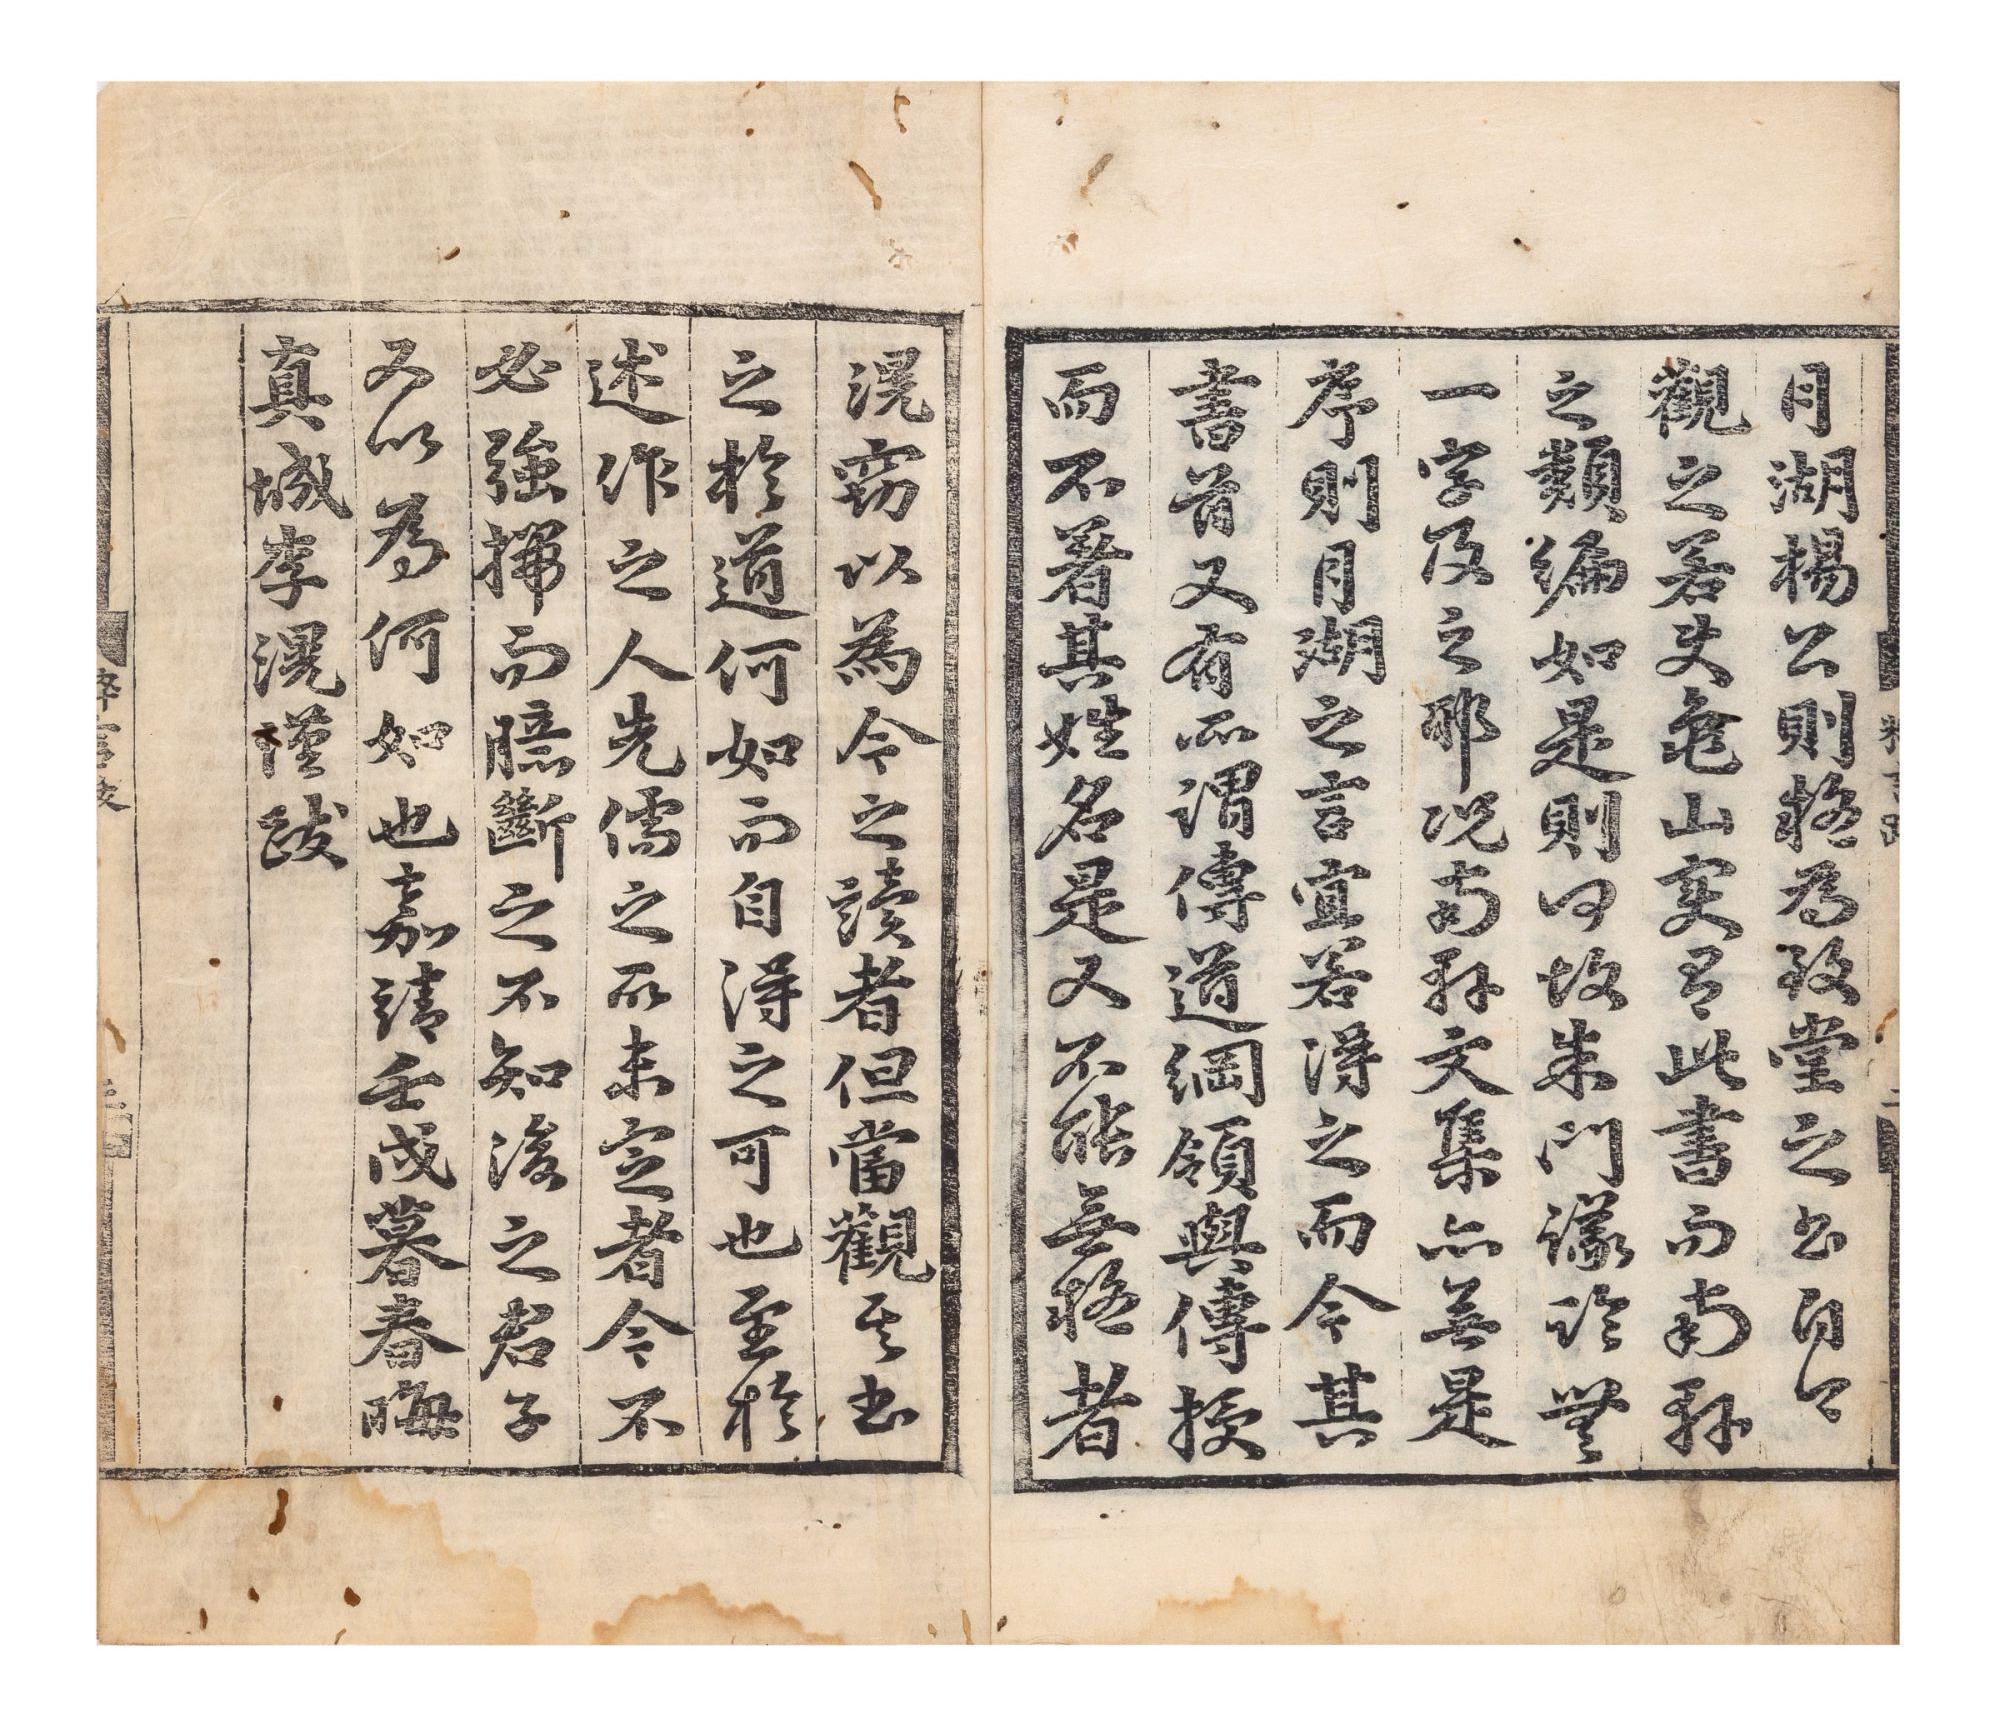 月湖楊公則疑為致堂之書自今
觀之若使龜山實有此書而南軒
之類編如是則何故朱門議論無
一字及之耶況南軒文集亦無是
序則月湖之言宜若得之而今其
書首又有所謂傳道綱領與傳授
而不著其姓名是又不能無疑者
滉竊以為今之讀者但當觀其書
之於道何如而自得之可也至於
述作之人先儒之所未定者今不
必強揣而臆斷之不知後之君子
又以為何如也嘉靖壬戌暮春晦
真城李滉謹跋